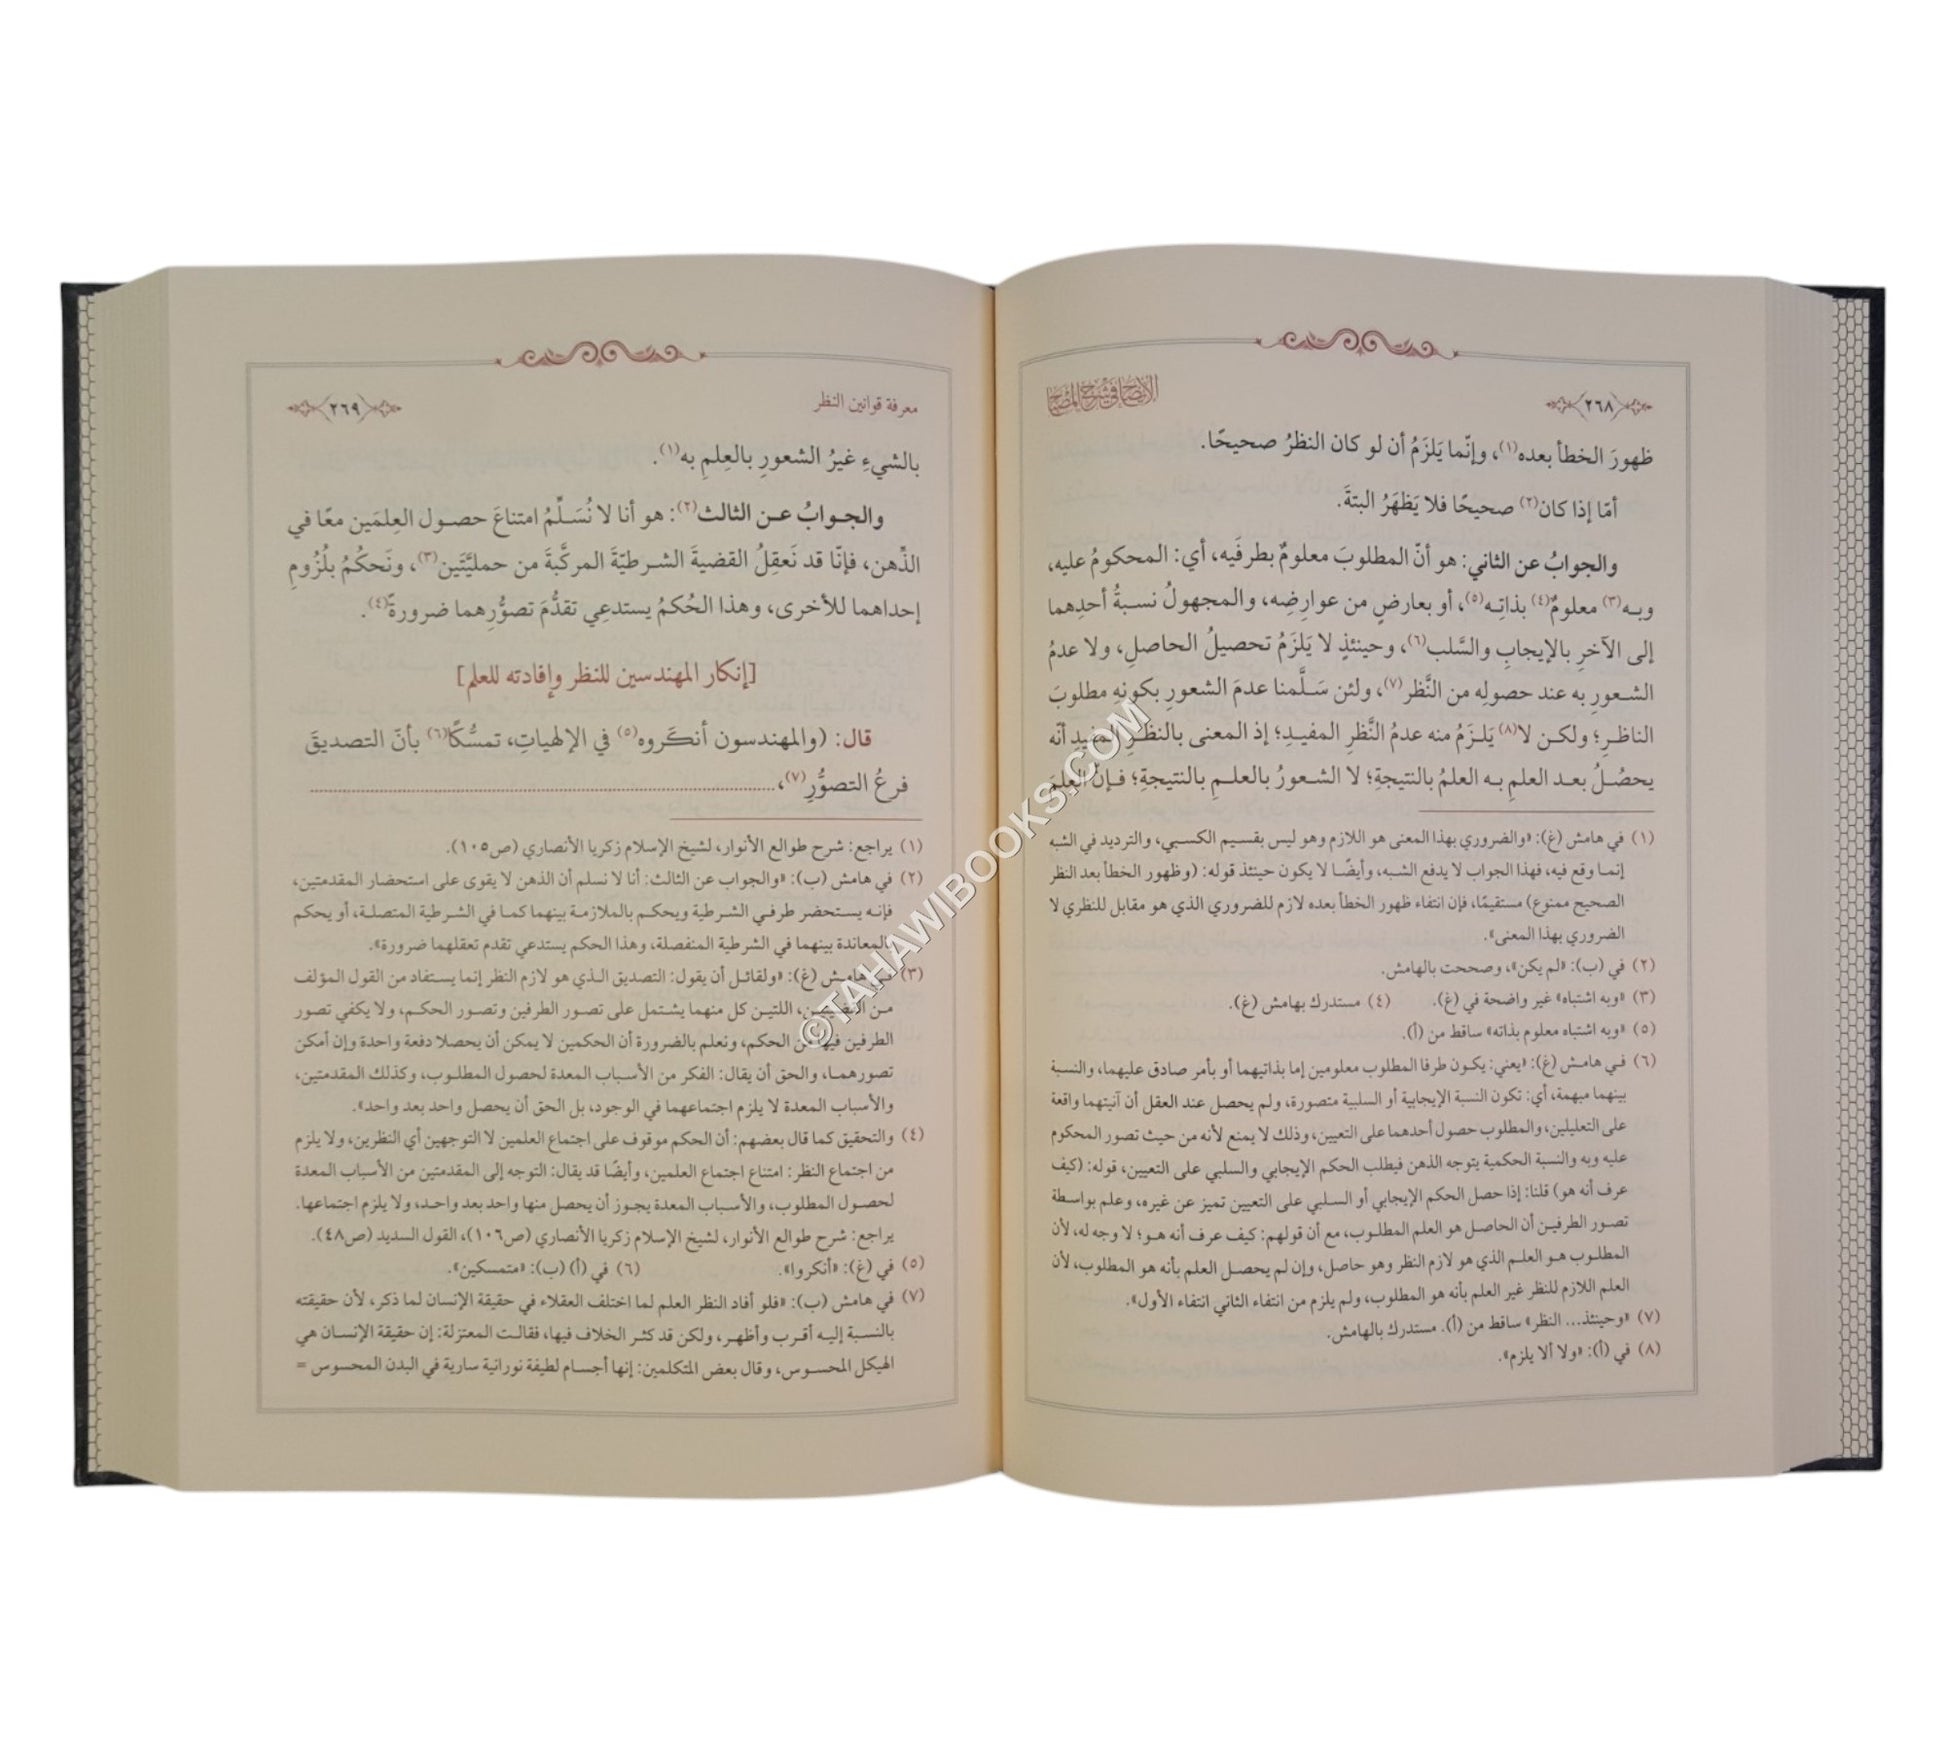 ٢٦٨
الإيضاح في شرح المصباح
ظهورَ الخطأ بعده(١)، وإنّما يَلزَمُ أن لو كان النظرُ صحيحًا.
أمّا إذا كان(٢) صحيحًا فلا يَظهَرُ البتةَ.
والجوابُ عن الثاني: هو أنّ المطلوبَ معلومٌ بطرفَيه، أي: المحكومُ عليه،
وبـه(٣) معلومٌ(٤) بذاتِـه(٥)، أو بعارضٍ من عوارضِه، والمجهولُ نسبةُ أحدِهما
إلى الآخرِ بالإيجابِ والسَّلب(٦)، وحينئذٍ لا يَلزَمُ تحصيلُ الحاصلِ، ولا عدمُ
الشعورِ به عند حصولِه من النَّظر(٧)، ولئن سَلَّمنا عدمَ الشعورِ بكونِه مطلوبَ
الناظرِ؛ ولكن لا(٨) يَلزَمُ منه عدمُ النَّظرِ المفيدِ؛ إذ المعنى بالنظرِ المفيدِ أنّه
يحصُلُ بعد العلمِ به العلمُ بالنتيجةِ؛ لا الشعورُ بالعلمِ بالنتيجةِ؛ فإنّ العلمَ
(١) في هامش (غ): «والضروري بهذا المعنى هو اللازم وهو ليس بقسيم الكسبي، والترديد في الشبه
إنما وقع فيه، فهذا الجواب لا يدفع الشبه، وأيضًا لا يكون حينئذ قوله: (وظهور الخطأ بعد النظر
الصحيح ممنوع) مستقيمًا، فإن انتفاء ظهور الخطأ بعده لازم للضروري الذي هو مقابل للنظري لا
الضروري بهذا المعنى».
(٢) في (ب): «لم يكن»، وصححت بالهامش.
(٣) «وبه اشتباه» غير واضحة في (غ). (٤) مستدرك بهامش (غ).
(٥) «وبه اشتباه معلوم بذاته» ساقط من (أ).
(٦) في هامش (غ): «يعني: يكون طرفا المطلوب معلومين إما بذاتيهما أو بأمر صادق عليهما، والنسبة
بينهما مبهمة، أي: تكون النسبة الإيجابية أو السلبية متصورة، ولم يحصل عند العقل أن آنيتهما واقعة
على التعليلين، والمطلوب حصول أحدهما على التعيين، وذلك لا يمنع لأنه من حيث تصور المحكوم
عليه وبه والنسبة الحكمية يتوجه الذهن فيطلب الحكم الإيجابي والسلبي على التعيين، قوله: (كيف
عرف أنه هو) قلنا: إذا حصل الحكم الإيجابي أو السلبي على التعيين تميز عن غيره، وعلم بواسطة
تصور الطرفين أن الحاصل هو العلم المطلوب، مع أن قولهم: كيف عرف أنه هو؛ لا وجه له، لأن
المطلوب هو العلم الذي هو لازم النظر وهو حاصل، وإن لم يحصل العلم بأنه هو المطلوب، لأن
العلم اللازم للنظر غير العلم بأنه هو المطلوب، ولم يلزم من انتفاء الثاني انتفاء الأول».
(٧) «وحينئذ... النظر» ساقط من (أ). مستدرك بالهامش.
(٨) في (أ): «ولا ألا يلزم».
معرفة قوانين النظر
٢٦٩
بالشيءِ غيرُ الشعورِ بالعِلمِ به(١).
والجوابُ عن الثالث(٢): هو أنا لا نُسَلِّمُ امتناعَ حصول العِلمَين معًا في
الذِّهن، فإنّا قد نَعقِلُ القضيةَ الشرطيّةَ المركَّبةَ من حمليَّتَين(٣)، ونَحكُمُ بلُزُومِ
إحداهما للأخرى، وهذا الحُكمُ يستدعِي تقدُّمَ تصوُّرِهما ضرورةً(٤).
[إنكار المهندسين للنظر وإفادته للعلم]
قال: (والمهندسون أنكَروه(٥) في الإلهياتِ، تمسُّكًا(٦) بأنّ التصديقَ
فرعُ التصوُّرِ(٧)، ........................
(١) يراجع: شرح طوالع الأنوار، لشيخ الإسلام زكريا الأنصاري (ص١٠٥).
(٢) في هامش (ب): «والجواب عن الثالث: أنا لا نسلم أن الذهن لا يقوى على استحضار المقدمتين،
فإنه يستحضر طرفي الشرطية ويحكم بالملازمة بينهما كما في الشرطية المتصلة، أو يحكم
بالمعاندة بينهما في الشرطية المنفصلة، وهذا الحكم يستدعي تقدم تعقلهما ضرورة».
(٣) في هامش (غ): «ولقائل أن يقول: التصديق الذي هو لازم النظر إنما يستفاد من القول المؤلف
من القضيتين، اللتين كل منهما يشتمل على تصور الطرفين وتصور الحكم، ولا يكفي تصور
الطرفين فيها من الحكم، ونعلم بالضرورة أن الحكمين لا يمكن أن يحصلا دفعة واحدة وإن أمكن
تصورهما، والحق أن يقال: الفكر من الأسباب المعدة لحصول المطلوب، وكذلك المقدمتين،
والأسباب المعدة لا يلزم اجتماعهما في الوجود، بل الحق أن يحصل واحد بعد واحد».
(٤) والتحقيق كما قال بعضهم: أن الحكم موقوف على اجتماع العلمين لا التوجهين أي النظرين، ولا يلزم
من اجتماع النظر: امتناع اجتماع العلمين، وأيضًا قد يقال: التوجه إلى المقدمتين من الأسباب المعدة
لحصول المطلوب، والأسباب المعدة يجوز أن يحصل منها واحد بعد واحد، ولا يلزم اجتماعها.
يراجع: شرح طوالع الأنوار، لشيخ الإسلام زكريا الأنصاري (ص١٠٦)، القول السديد (ص٤٨).
(٥) في (غ): «أنكروا». (٦) في (أ) (ب): «متمسكين».
(٧) في هامش (ب): «فلو أفاد النظر العلم لما اختلف العقلاء في حقيقة الإنسان لما ذكر، لأن حقيقته
بالنسبة إليه أقرب وأظهر، ولكن قد كثر الخلاف فيها، فقالت المعتزلة: إن حقيقة الإنسان هي
الهيكل المحسوس، وقال بعض المتكلمين: إنها أجسام لطيفة نورانية سارية في البدن المحسوس =
©TAHAWIBOOKS.COM